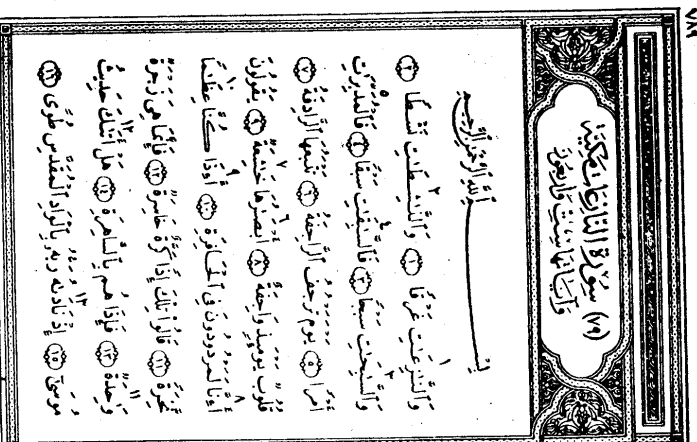 ٧٨٩
(٧٩) سُورَةُ النَّازِعَاتِ مَكِّيَّةٌ
وَآيَاتُهَا سِتٌّ وَأَرْبَعُونَ
بِسْمِ ٱللَّهِ ٱلرَّحْمَٰنِ ٱلرَّحِيمِ
وَٱلنَّٰزِعَٰتِ غَرْقًا ١ وَٱلنَّٰشِطَٰتِ نَشْطًا ٢
وَٱلسَّٰبِحَٰتِ سَبْحًا ٣ فَٱلسَّٰبِقَٰتِ سَبْقًا ٤ فَٱلْمُدَبِّرَٰتِ
أَمْرًا ٥ يَوْمَ تَرْجُفُ ٱلرَّاجِفَةُ ٦ تَتْبَعُهَا ٱلرَّادِفَةُ ٧
قُلُوبٌ يَوْمَئِذٍ وَاجِفَةٌ ٨ أَبْصَٰرُهَا خَٰشِعَةٌ ٩ يَقُولُونَ
أَءِنَّا لَمَرْدُودُونَ فِي ٱلْحَافِرَةِ ١٠ أَءِذَا كُنَّا عِظَٰمًا
نَّخِرَةً ١١ قَالُوا۟ تِلْكَ إِذًا كَرَّةٌ خَاسِرَةٌ ١٢ فَإِنَّمَا هِيَ زَجْرَةٌ
وَٰحِدَةٌ ١٣ فَإِذَا هُم بِٱلسَّاهِرَةِ ١٤ هَلْ أَتَىٰكَ حَدِيثُ
مُوسَىٰ ١٥ إِذْ نَادَىٰهُ رَبُّهُۥ بِٱلْوَادِ ٱلْمُقَدَّسِ طُوًى ١٦